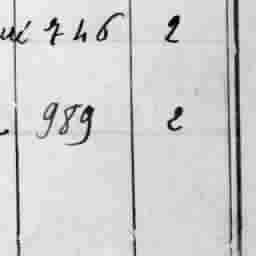 746 2
989 2